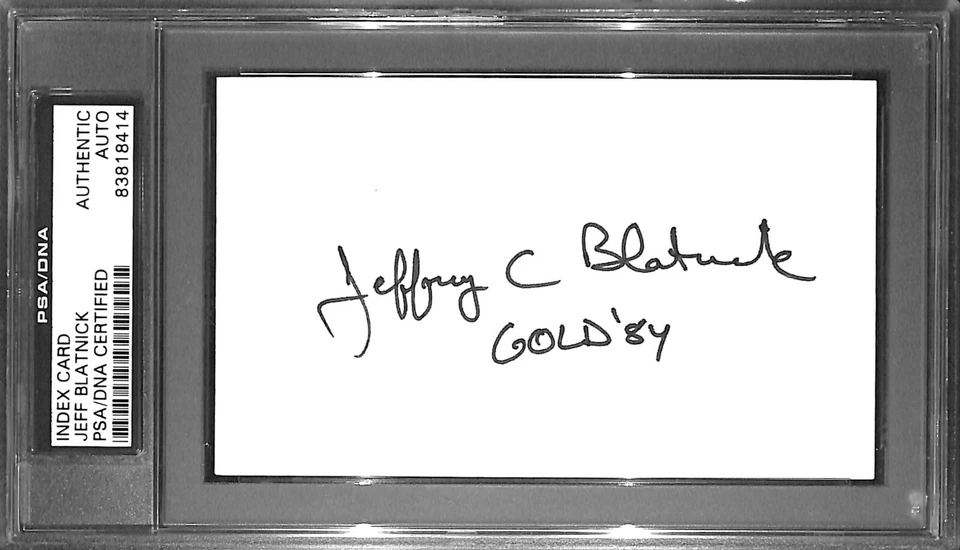 PSA/DNA
INDEX CARD
JEFF BLATNICK
PSA/DNA CERTIFIED
AUTHENTIC
AUTO
83818414
Jeffrey C Blatnick
GOLD '84